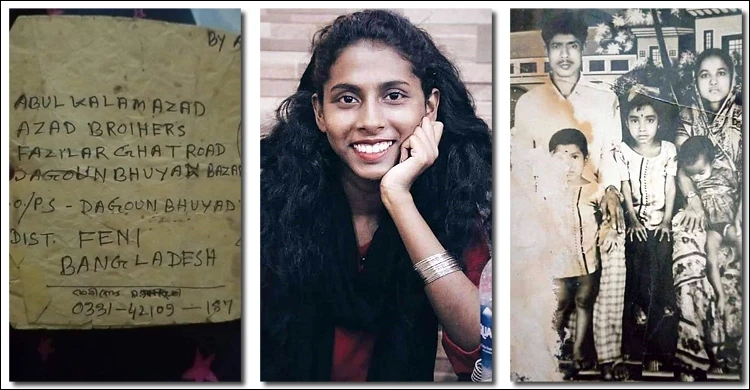 BY A
ABUL KALAM AZAD
AZAD BROTHERS
FAZILAR GHAT ROAD
DAGOUN BHUYAN BAZAR
O/PS - DAGOUN BHUYAD
DIST. FENI
BANGLADESH
0331-42109-187
QUA